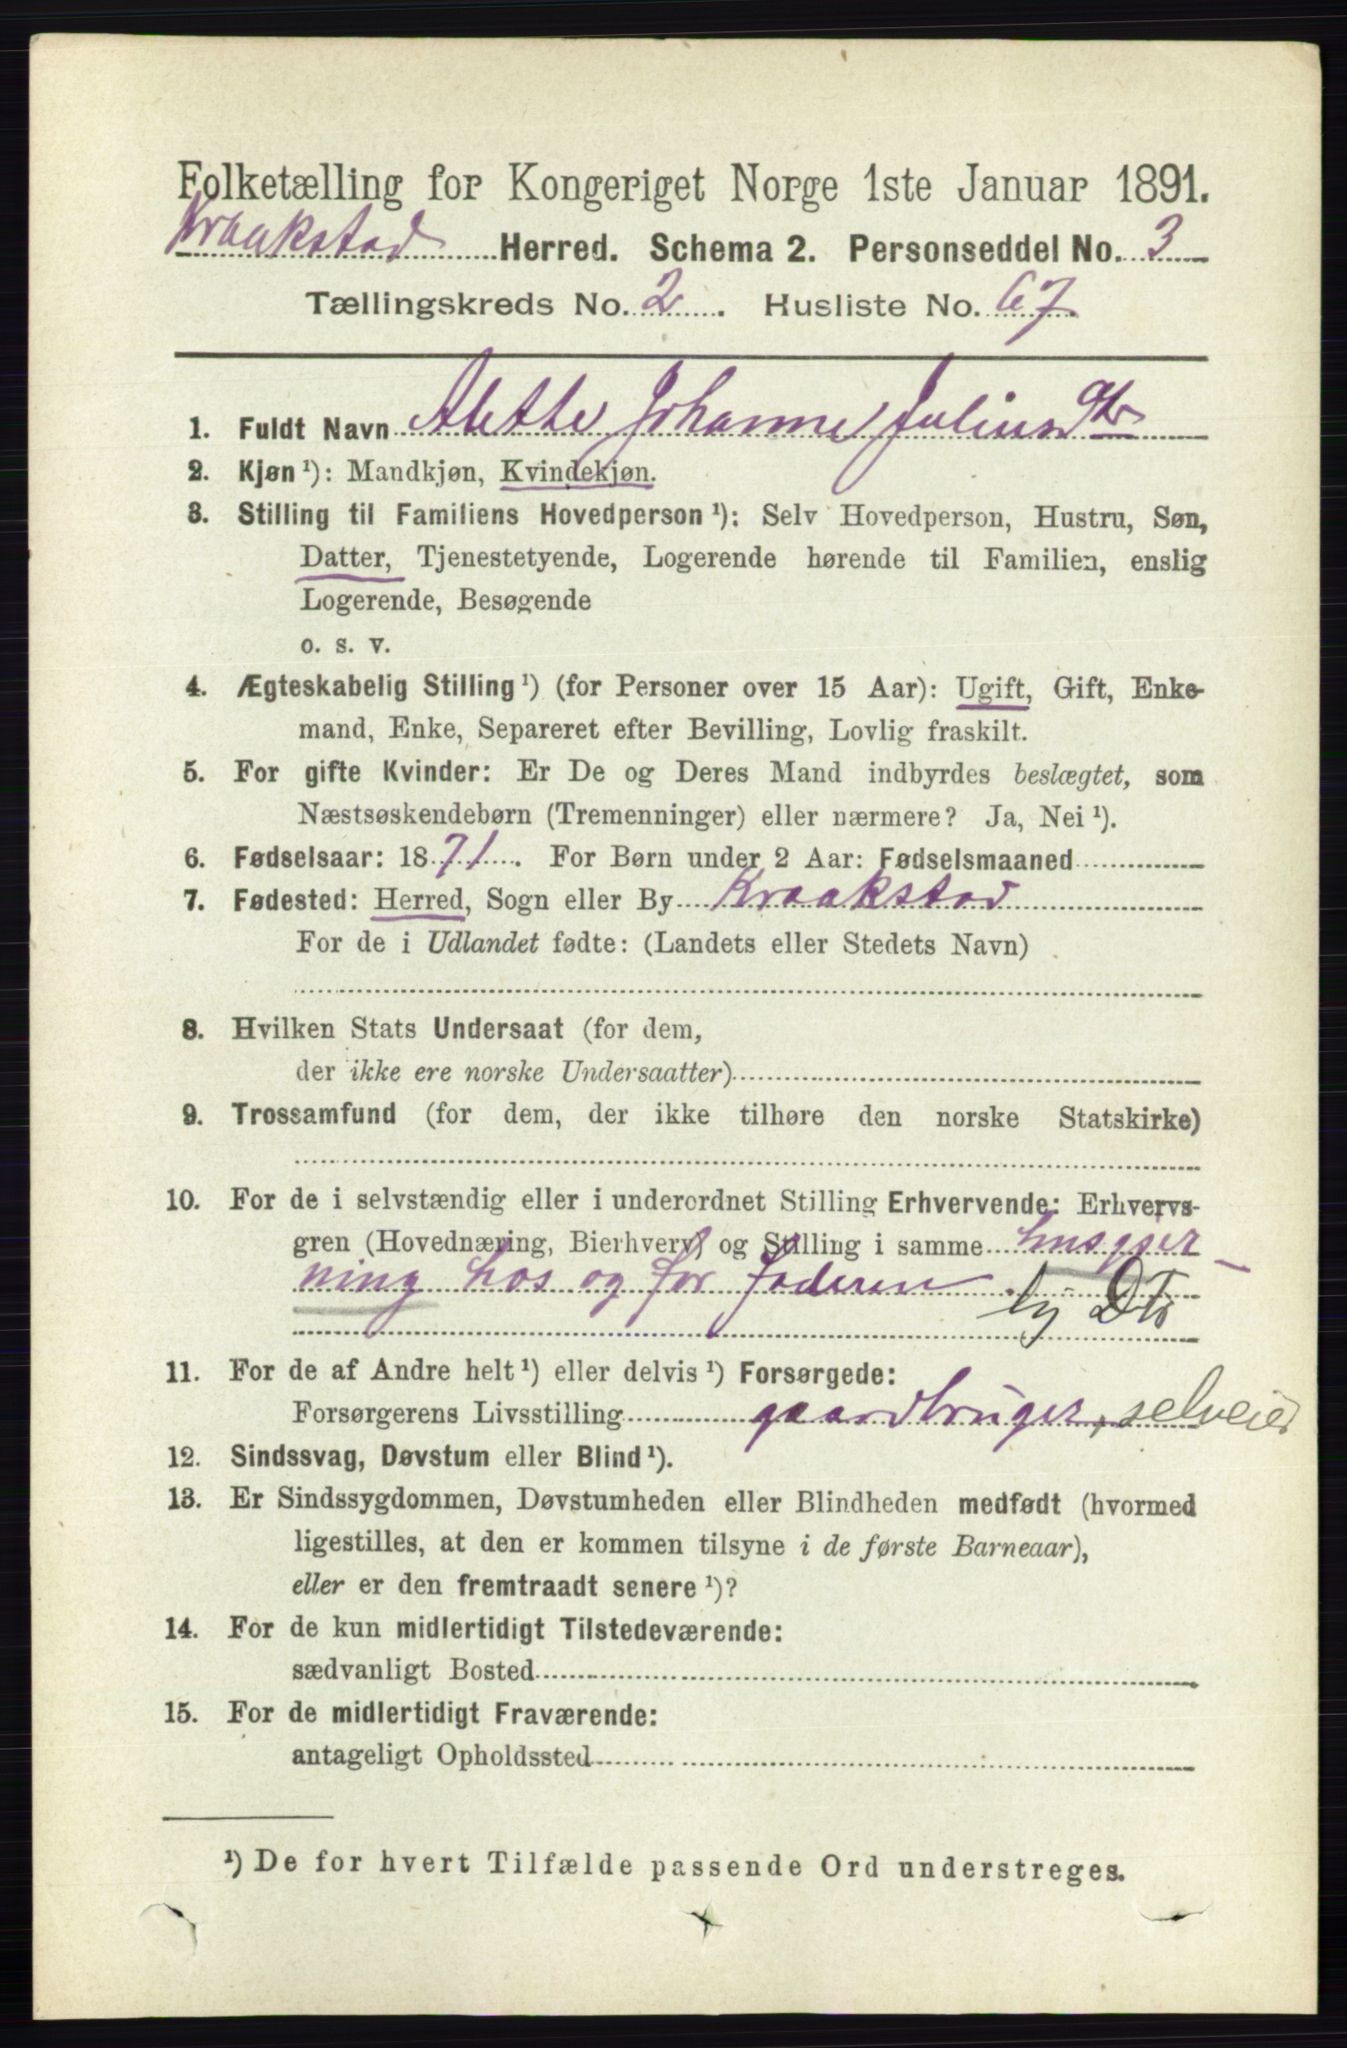 Folketælling for Kongeriget Norge 1ste Januar 1891.
Kraakstad Herred. Schema 2. Personseddel No. 3
Tællingskreds No. 2. Husliste No. 67.
1. Fuldt Navn Alette Johanne Juliusdtr
2. Kjøn ¹): Mandkjøn, Kvindekjøn.
3. Stilling til Familiens Hovedperson ¹): Selv Hovedperson, Hustru, Søn,
Datter, Tjenestetyende, Logerende hørende til Familien, enslig
Logerende, Besøgende
o. s. v.
4. Ægteskabelig Stilling ¹) (for Personer over 15 Aar): Ugift, Gift, Enke-
mand, Enke, Separeret efter Bevilling, Lovlig fraskilt.
5. For gifte Kvinder: Er De og Deres Mand indbyrdes beslægtet, som
Næstsøskendebørn (Tremenninger) eller nærmere? Ja, Nei ¹).
6. Fødselsaar: 1871. For Børn under 2 Aar: Fødselsmaaned
7. Fødested: Herred, Sogn eller By Kraakstad
For de i Udlandet fødte: (Landets eller Stedets Navn)
8. Hvilken Stats Undersaat (for dem,
der ikke ere norske Undersaatter)
9. Trossamfund (for dem, der ikke tilhøre den norske Statskirke)
10. For de i selvstændig eller i underordnet Stilling Erhvervende: Erhvervs-
gren (Hovednæring, Bierhverv) og Stilling i samme husgjer-
ning hos og for faderen
11. For de af Andre helt ¹) eller delvis ¹) Forsørgede:
Forsørgerens Livsstilling gaardbruger, selveier
12. Sindssvag, Døvstum eller Blind ¹).
13. Er Sindssygdommen, Døvstumheden eller Blindheden medfødt (hvormed
ligestilles, at den er kommen tilsyne i de første Barneaar),
eller er den fremtraadt senere ¹)?
14. For de kun midlertidigt Tilstedeværende:
sædvanligt Bosted
15. For de midlertidigt Fraværende:
antageligt Opholdssted
¹) De for hvert Tilfælde passende Ord understreges.